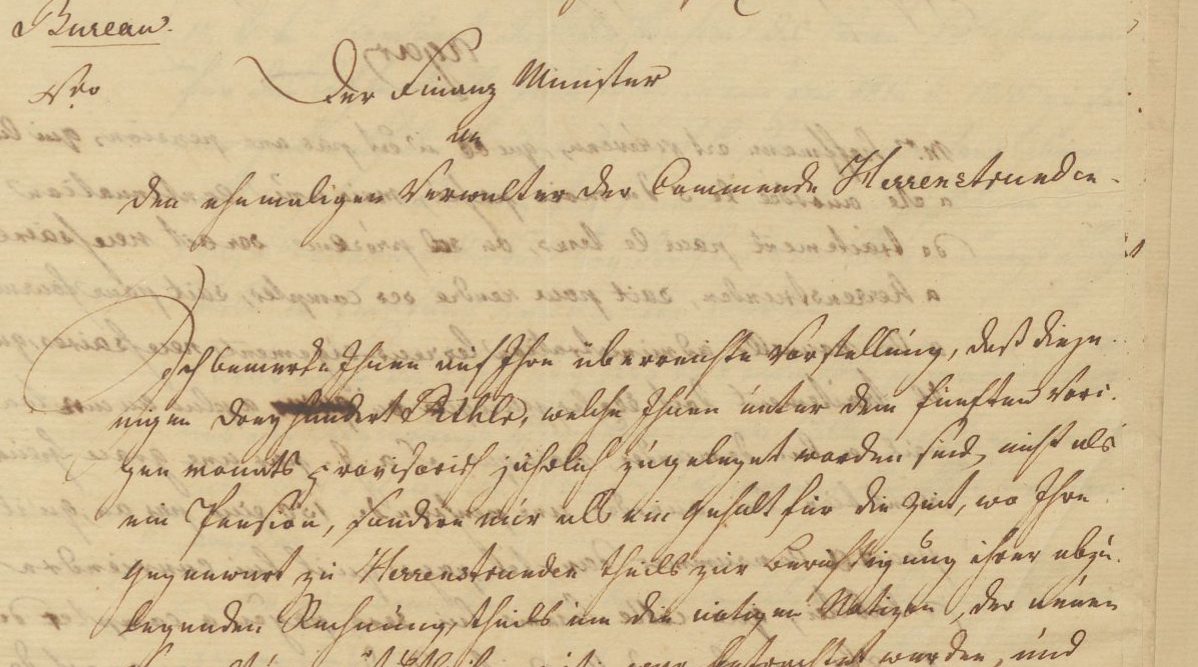 Bureau.
Der Finanz Minister
an
den ehemaligen Verwalter der Commende Herrenstrunden.
Ich bemerke Ihnen auf Ihre überreichte Vorstellung, daß dieje-
nigen dreyhundert Rthlr, welche Ihnen unter dem fünften vori-
gen monats provisorisch jährlich zugeleget worden sind, nicht als
ein Pension, sondern nur als ein Gehalt für die Zeit, wo Ihre
gegenwart zu Herrenstrunden theils zur Berichtigung ihrer abzu-
legenden Rechnung, theils um die nötigen Notizen, der neuen
betrachtet werden, und